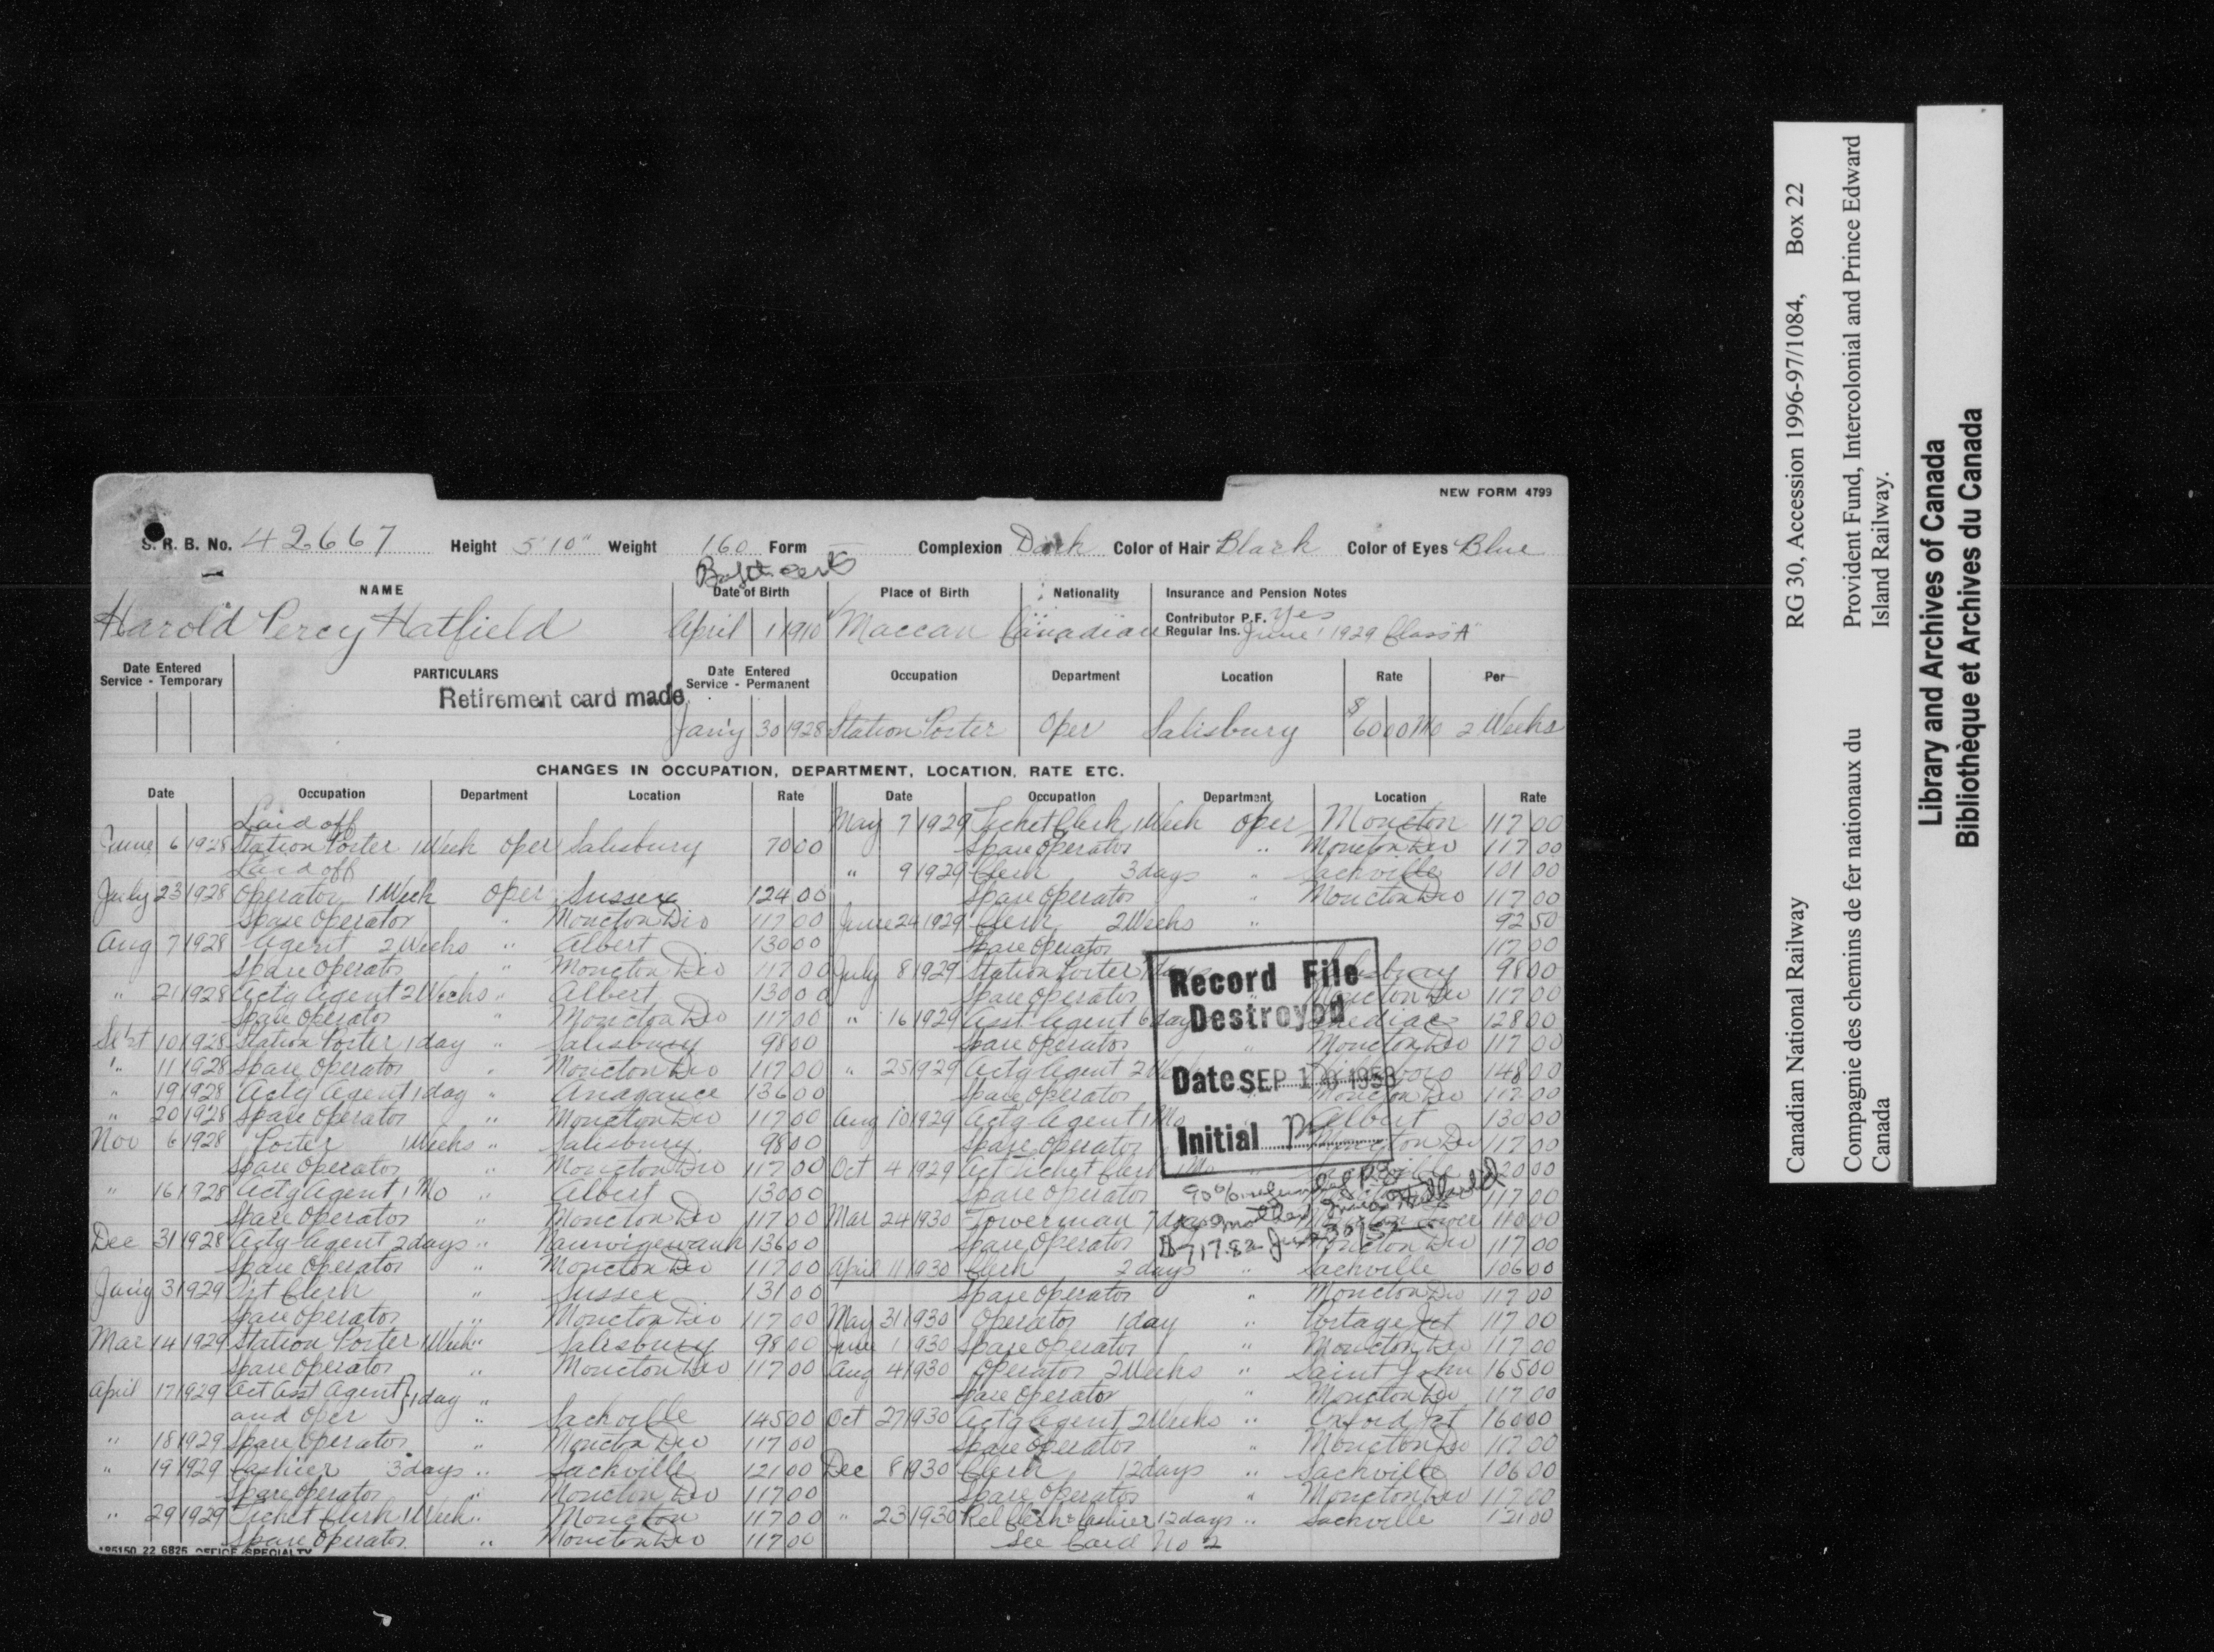 NEW FORM 4799
S. R. B. No. 42667 Height 5'10" Weight 160 Form Complexion Dark Color of Hair Black Color of Eyes Blue
NAME Date of Birth Place of Birth Nationality Insurance and Pension Notes
Harold Percy Hatfield April 1 1910 Maccan Canadian Contributor P.F. Yes
Regular Ins. June 1 1929 Class "A"
Date Entered Service - Temporary PARTICULARS Date Entered Service - Permanent Occupation Department Location Rate Per
Retirement card made
Jan'y 30 1928 Station Porter Oper Salisbury $ 60 00 Mo 2 Weeks
CHANGES IN OCCUPATION, DEPARTMENT, LOCATION, RATE ETC.
Date Occupation Department Location Rate
Laid off
June 6 1928 Station Porter 1 Week Oper Salisbury 70 00
Laid off
July 23 1928 Operator 1 Week Oper Sussex 124 00
Spare Operator " Moncton Div 117 00
Aug 7 1928 Agent 2 Weeks " Albert 130 00
Spare Operator " Moncton Div 117 00
" 21 1928 Actg Agent 2 Weeks " Albert 130 00
Spare Operator " Moncton Div 117 00
Sept 10 1928 Station Porter 1 day " Salisbury 98 00
" 11 1928 Spare Operator " Moncton Div 117 00
" 19 1928 Actg Agent 1 day " Anagance 136 00
" 20 1928 Spare Operator " Moncton Div 117 00
Nov 6 1928 Porter 1 Weeks " Salisbury 98 00
Spare Operator " Moncton Div 117 00
" 16 1928 Actg Agent 1 Mo " Albert 130 00
Spare Operator " Moncton Div 117 00
Dec 31 1928 Actg Agent 2 days " Nauwigewauk 136 00
Spare Operator " Moncton Div 117 00
Jan'y 3 1929 Clerk " Sussex 131 00
Spare Operator " Moncton Div 117 00
Mar 14 1929 Station Porter 1 Week " Salisbury 98 00
Spare Operator " Moncton Div 117 00
April 17 1929 Act Asst Agent } 1 day "
and Oper " Sackville 145 00
" 18 1929 Spare Operator " Moncton Div 117 00
" 19 1929 Cashier 3 days " Sackville 121 00
Spare Operator " Moncton Div 117 00
" 29 1929 Ticket Clerk 1 Week " Moncton 117 00
Spare Operator " Moncton Div 117 00
OFFICE SPECIALTY
Date Occupation Department Location Rate
May 7 1929 Ticket Clerk 1 Week Oper Moncton 117 00
Spare Operator " Moncton Div 117 00
" 9 1929 Clerk 3 days " Sackville 101 00
Spare Operator " Moncton Div 117 00
June 24 1929 Clerk 2 Weeks " 92 50
Spare Operator 117 00
July 8 1929 Station Porter Salisbury 98 00
Spare Operator " Moncton Div 117 00
" 16 1929 Asst Agent 6 days Shediac 128 00
Spare Operator " Moncton Div 117 00
" 25 1929 Actg Agent 2 Hillsboro 148 00
Spare Operator Moncton Div 117 00
Aug 10 1929 Actg Agent 1 Mo Albert 130 00
Spare Operator Moncton Div 117 00
Oct 4 1929 Act Ticket Clerk 1 Mo
Spare Operator 117 00
Mar 24 1930 Towerman 7 days Tower 110 00
Spare Operator Moncton Div 117 00
April 11 1930 Clerk 2 days " Sackville 106 00
Spare Operator " Moncton Div 117 00
May 31 1930 Operator 1 day " Portage Jct 117 00
June 1 1930 Spare Operator " Moncton Div 117 00
Aug 4 1930 Operator 2 Weeks " Saint John 165 00
Spare Operator " Moncton Div 117 00
Oct 27 1930 Actg Agent 2 Weeks " Oxford Jct 160 00
Spare Operator " Moncton Div 117 00
Dec 8 1930 Clerk 12 days " Sackville 106 00
Spare Operator " Moncton Div 117 00
" 23 1930 Rel Clerk & Cashier 12 days " Sackville 121 00
See Card No 2
Record File
Destroyed
Date SEP 1953
Initial
Canadian National Railway RG 30, Accession 1996-97/1084, Box 22
Compagnie des chemins de fer nationaux du Provident Fund, Intercolonial and Prince Edward
Canada Island Railway.
Library and Archives of Canada
Bibliothèque et Archives du Canada